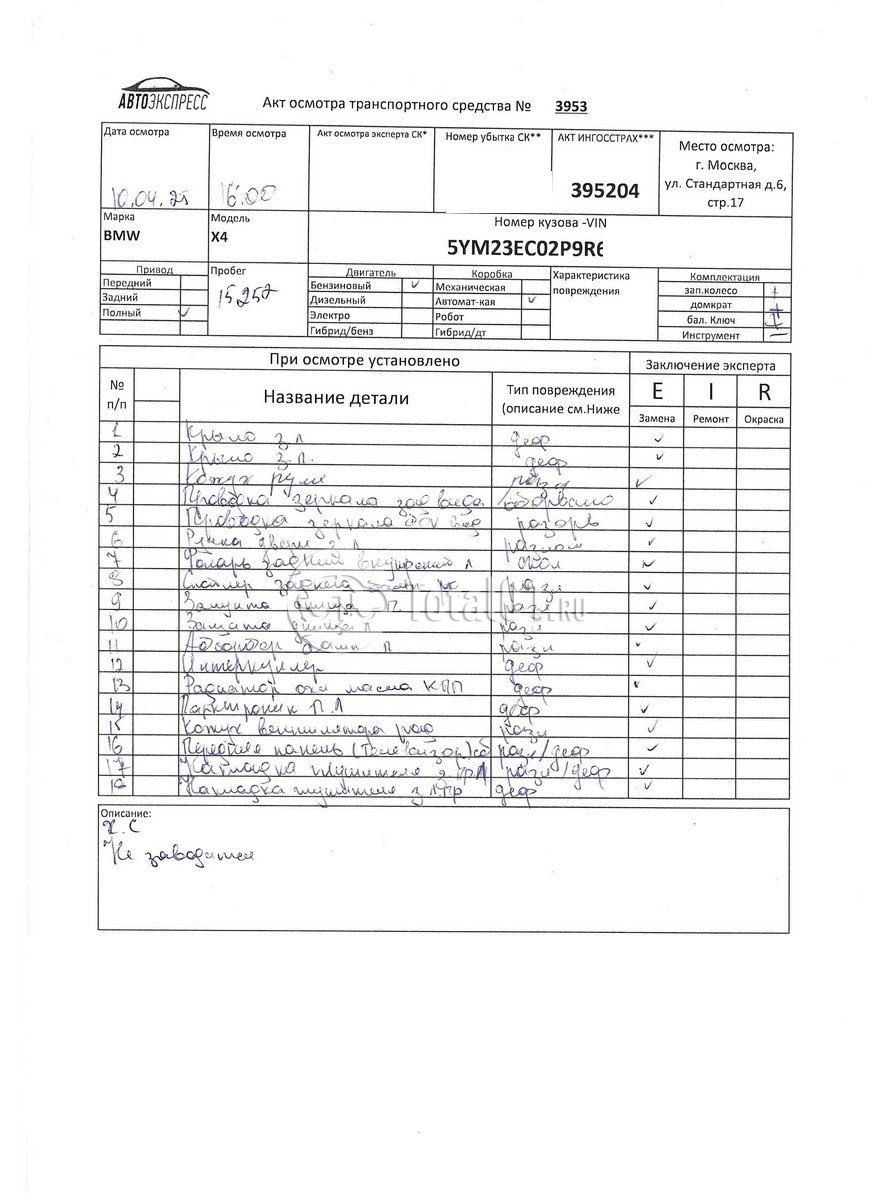 АВТОЭКСПРЕСС
Акт осмотра транспортного средства № 3953
Дата осмотра Время осмотра Акт осмотра эксперта СК* Номер убытка СК** АКТ ИНГОССТРАХ*** Место осмотра:
г. Москва,
10.04.25 16:00 395204 ул. Стандартная д.6,
стр.17
Марка Модель Номер кузова -VIN
BMW X4 5YM23EC02P9R6
Привод Пробег Двигатель Коробка Характеристика повреждения Комплектация
Передний 15257 Бензиновый ✓ Механическая зап.колесо +
Задний Дизельный Автомат-кая ✓ домкрат +
Полный ✓ Электро Робот бал. Ключ +
Гибрид/бенз Гибрид/дт Инструмент —
При осмотре установлено Заключение эксперта
№ п/п Название детали Тип повреждения (описание см.Ниже E I R
Замена Ремонт Окраска
1 Крыло з л деф ✓
2 Крыло з.п. деф ✓
3 Кожух руля разр ✓
4 Проводка зеркала зад вида оборвано ✓
5 Проводка зеркала вид разорв ✓
6 Ручка двери з л разлом ✓
7 Фонарь задний внутренний л скол ✓
8 Спойлер заднего разр ✓
9 Защита днища П. разр ✓
10 Защита днища л разр ✓
11 Абсорбер бамп П разр ✓
12 Интеркулер деф ✓
13 Радиатор охл масла КПП деф ✓
14 Парктроник П.Л деф ✓
15 Кожух вентилятора разр ✓
16 Передняя панель (телевизор) сб разр/деф ✓
17 Накладка глушителя з. разр/деф ✓
18 Накладка глушителя з деф ✓
Описание:
Х.С
Не заводится
Total.RU